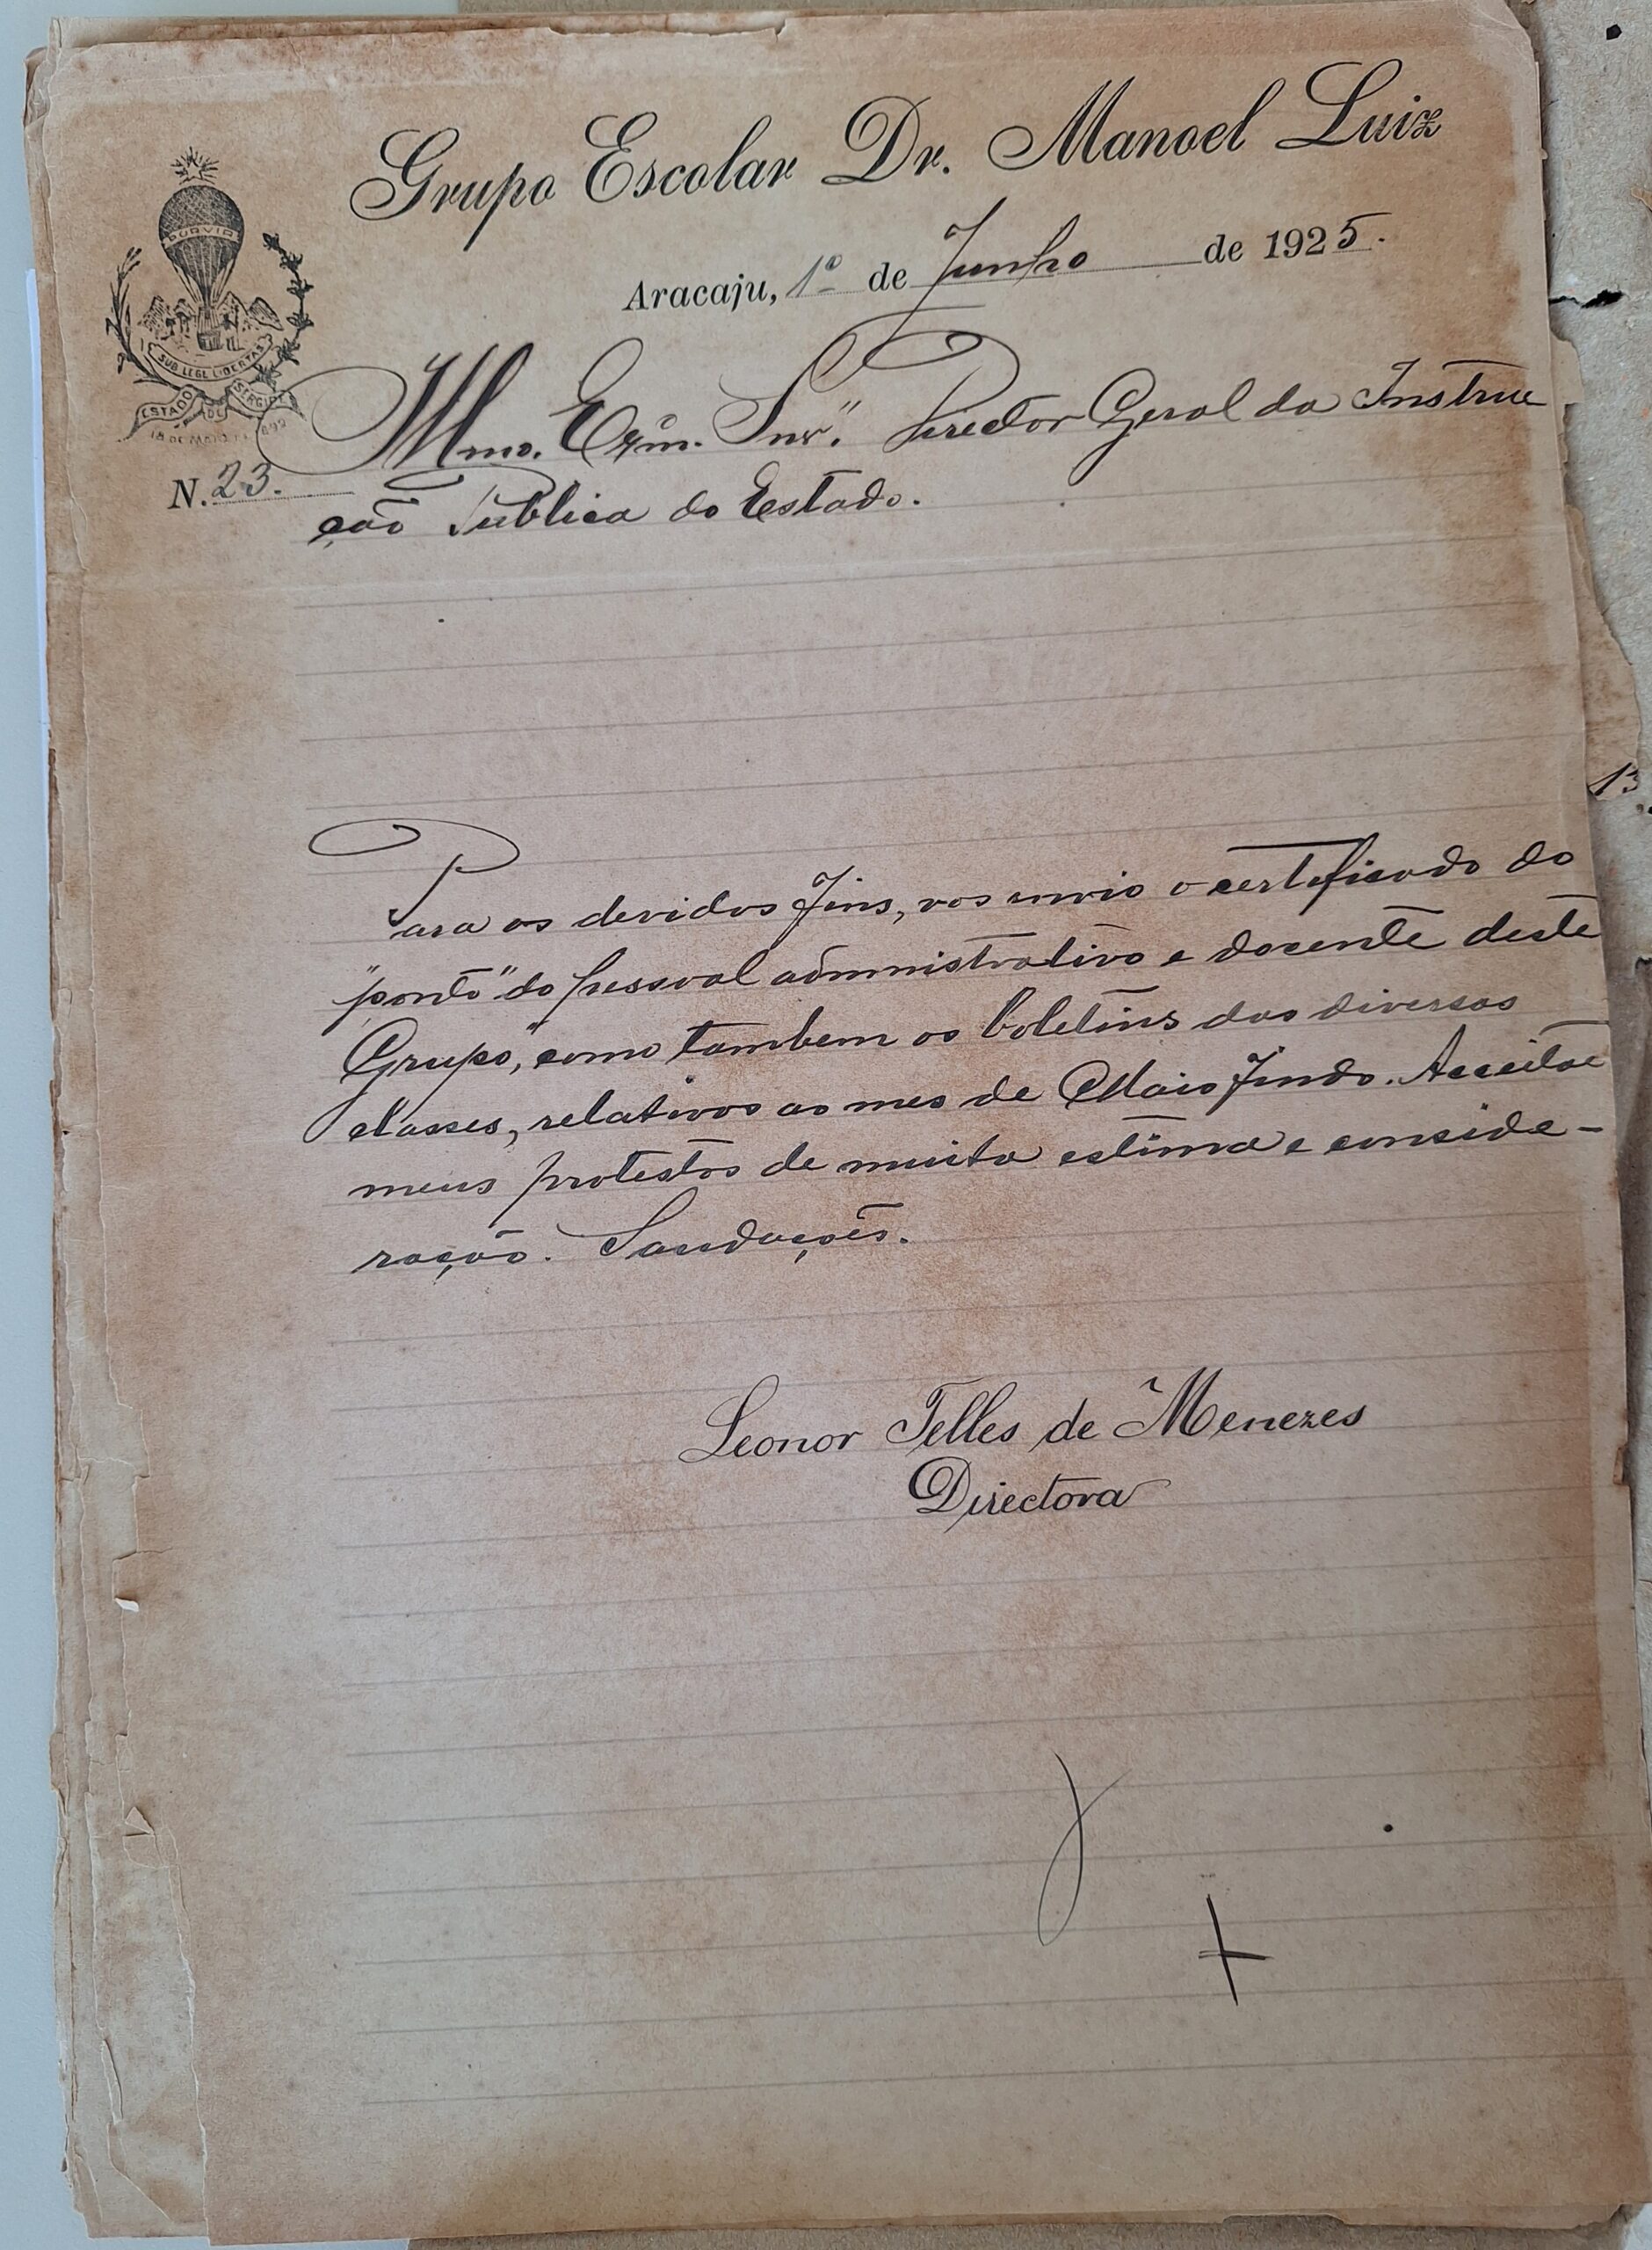 Grupo Escolar Dr. Manoel Luiz
Aracaju, 1º de Junho de 1925.
PORVIR
SUB LEGE LIBERTAS
ESTADO DE SERGIPE
18 DE MAIO DE 1892
N. 23.
Illmo. Exm. Snr. Director Geral da Instruc
ção Publica do Estado.
Para os devidos fins, vos envio o certificado do
"ponto" do pessoal administrativo e docente deste
"Grupo", como tambem os boletins das diversas
classes, relativos ao mes de Maio findo. Acceitae
meus protestos de muita estima e conside-
ração. Saudações.
Leonor Telles de Menezes
Directora
13